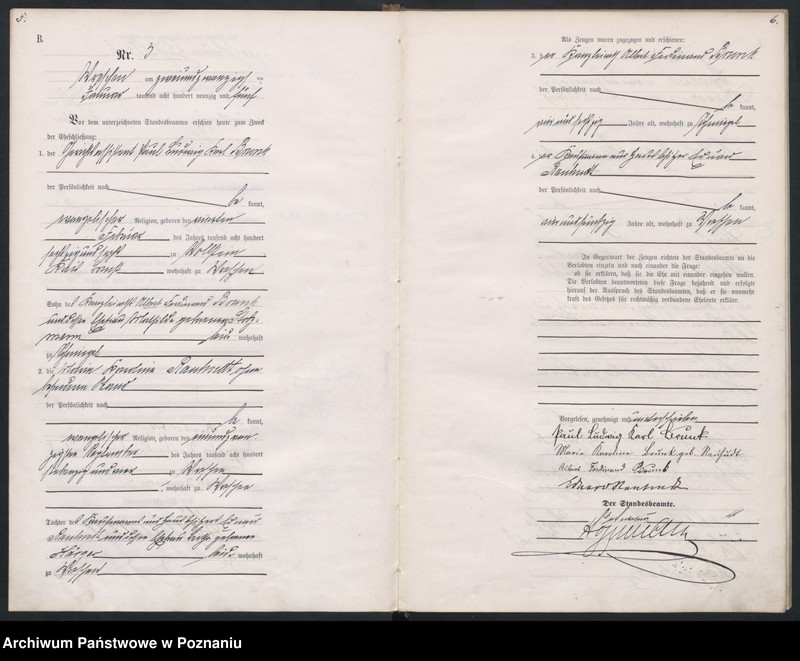 5.
B.
Nr. 3
Wreschen am zweiundzwanzigsten
Januar tausend acht hundert neunzig und fünf
Vor dem unterzeichneten Standesbeamten erschien heute zum Zweck
der Eheschließung:
1. der Gerichtsassistent Paul Ludwig Karl Brunk
der Persönlichkeit nach
be kannt,
evangelischer Religion, geboren den vierten
Februar des Jahres tausend acht hundert
sechzig und zu Wollstein
wohnhaft zu Wreschen
Sohn des Kanzleirath Albert Ferdinand Brunk
und dessen Ehefrau Mathilde geborenen
mann wohnhaft
zu Schmiegel
2. die Maria Karolina ohne
besonderen Stand
der Persönlichkeit nach
be kannt,
evangelischer Religion, geboren den einundzwan-
zigsten September des Jahres tausend acht hundert
siebenzig und vier zu Wreschen
, wohnhaft zu Wreschen
Tochter des Kaufmanns und Hausbesitzers Eduard
und dessen Ehefrau geborenen
wohnhaft
zu Wreschen
6.
Als Zeugen waren zugezogen und erschienen:
3. der Kanzleirath Albert Ferdinand Brunk
der Persönlichkeit nach
be kannt,
vier und sechzig Jahre alt, wohnhaft zu Schmiegel
4. der Kaufmann und Hausbesitzer Eduard
der Persönlichkeit nach
be kannt,
vier und fünfzig Jahre alt, wohnhaft zu Wreschen
In Gegenwart der Zeugen richtete der Standesbeamte an die
Verlobten einzeln und nach einander die Frage:
ob sie erklären, daß sie die Ehe mit einander eingehen wollen.
Die Verlobten beantworteten diese Frage bejahend und erfolgte
hierauf der Ausspruch des Standesbeamten, daß er sie nunmehr
kraft des Gesetzes für rechtmäßig verbundene Eheleute erkläre.
Vorgelesen, genehmigt und unterschrieben
Paul Ludwig Karl Brunk
Maria Karoline Brunk geb.
Albert Ferdinand Brunk
Eduard
Der Standesbeamte.
In Vertretung
Archiwum Państwowe w Poznaniu